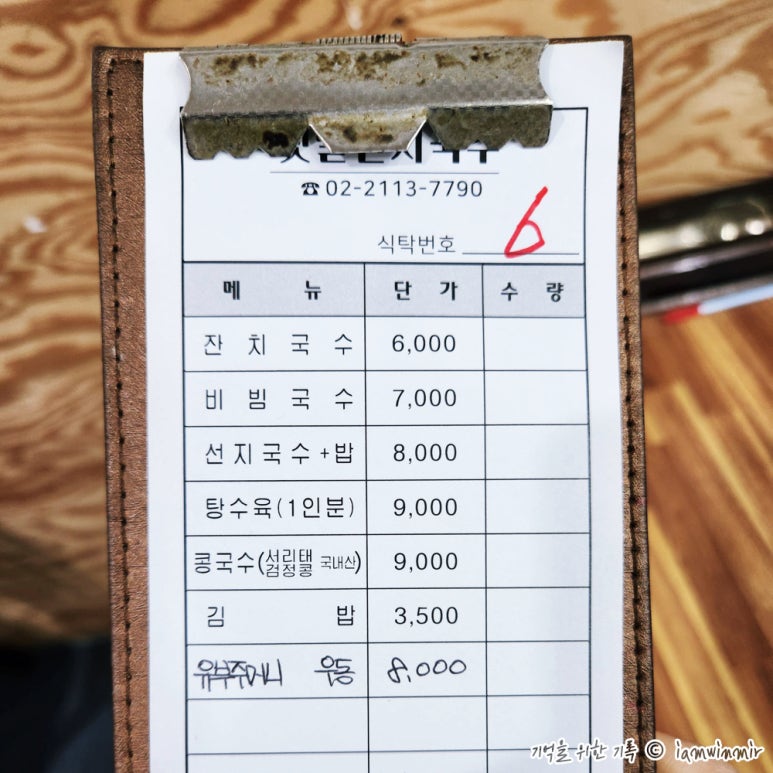 ☎ 02-2113-7790
식탁번호 6
메 뉴 단 가 수 량
잔 치 국 수 6,000
비 빔 국 수 7,000
선지국수+밥 8,000
탕수육(1인분) 9,000
콩국수(서리태 검정콩 국내산) 9,000
김 밥 3,500
유부주머니 우동 8,000
기억을 위한 기록 © iamwinmir